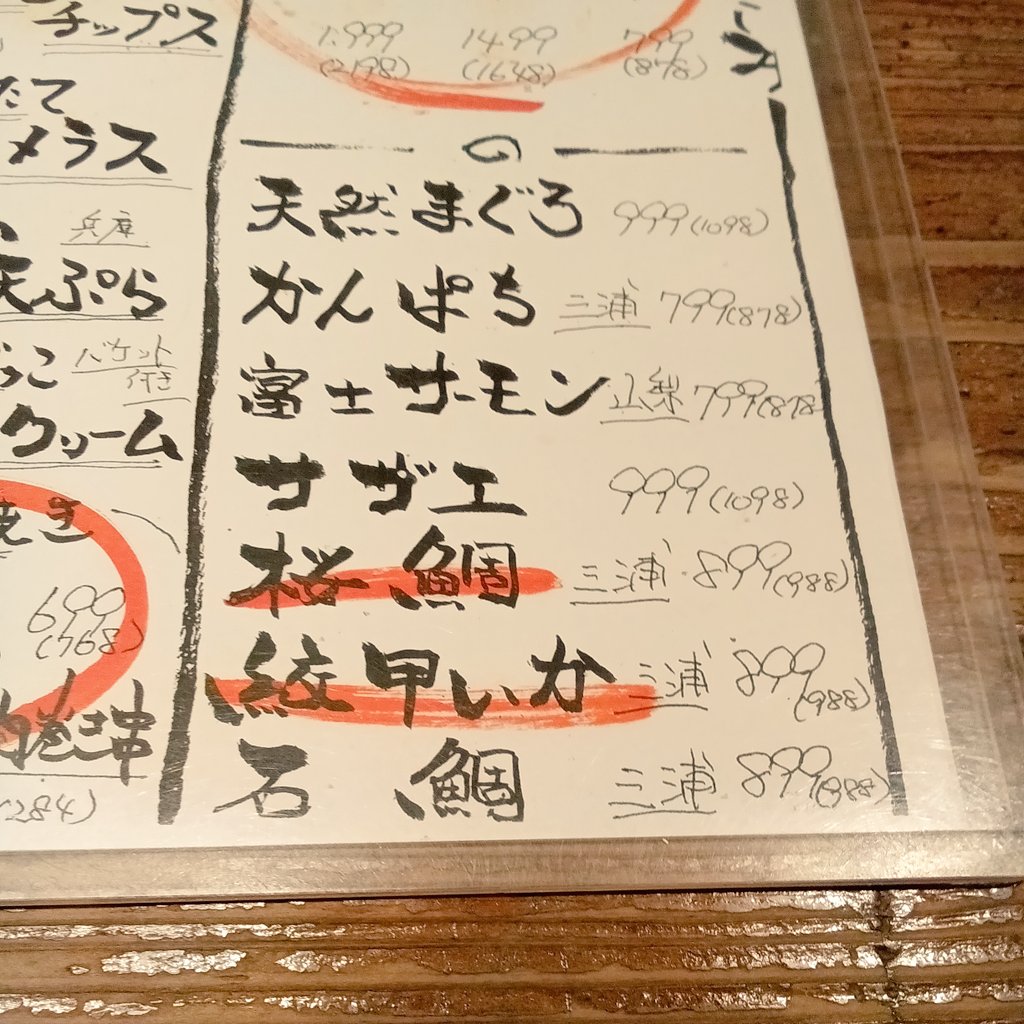 チップス
たて
メラス
兵庫
天ぷら
っこ バケット
付き
クリーム
焼き
699
(768)
肉巻き串
(284)
1.999 1499 799
(2198) (1648) (878)
の
天然まぐろ 999(1098)
かんぱち 三浦 799(878)
富士サーモン 山梨 799(878)
サザエ 999(1098)
桜鯛 三浦 899(988)
紋甲いか 三浦 899(988)
石鯛 三浦 899(988)